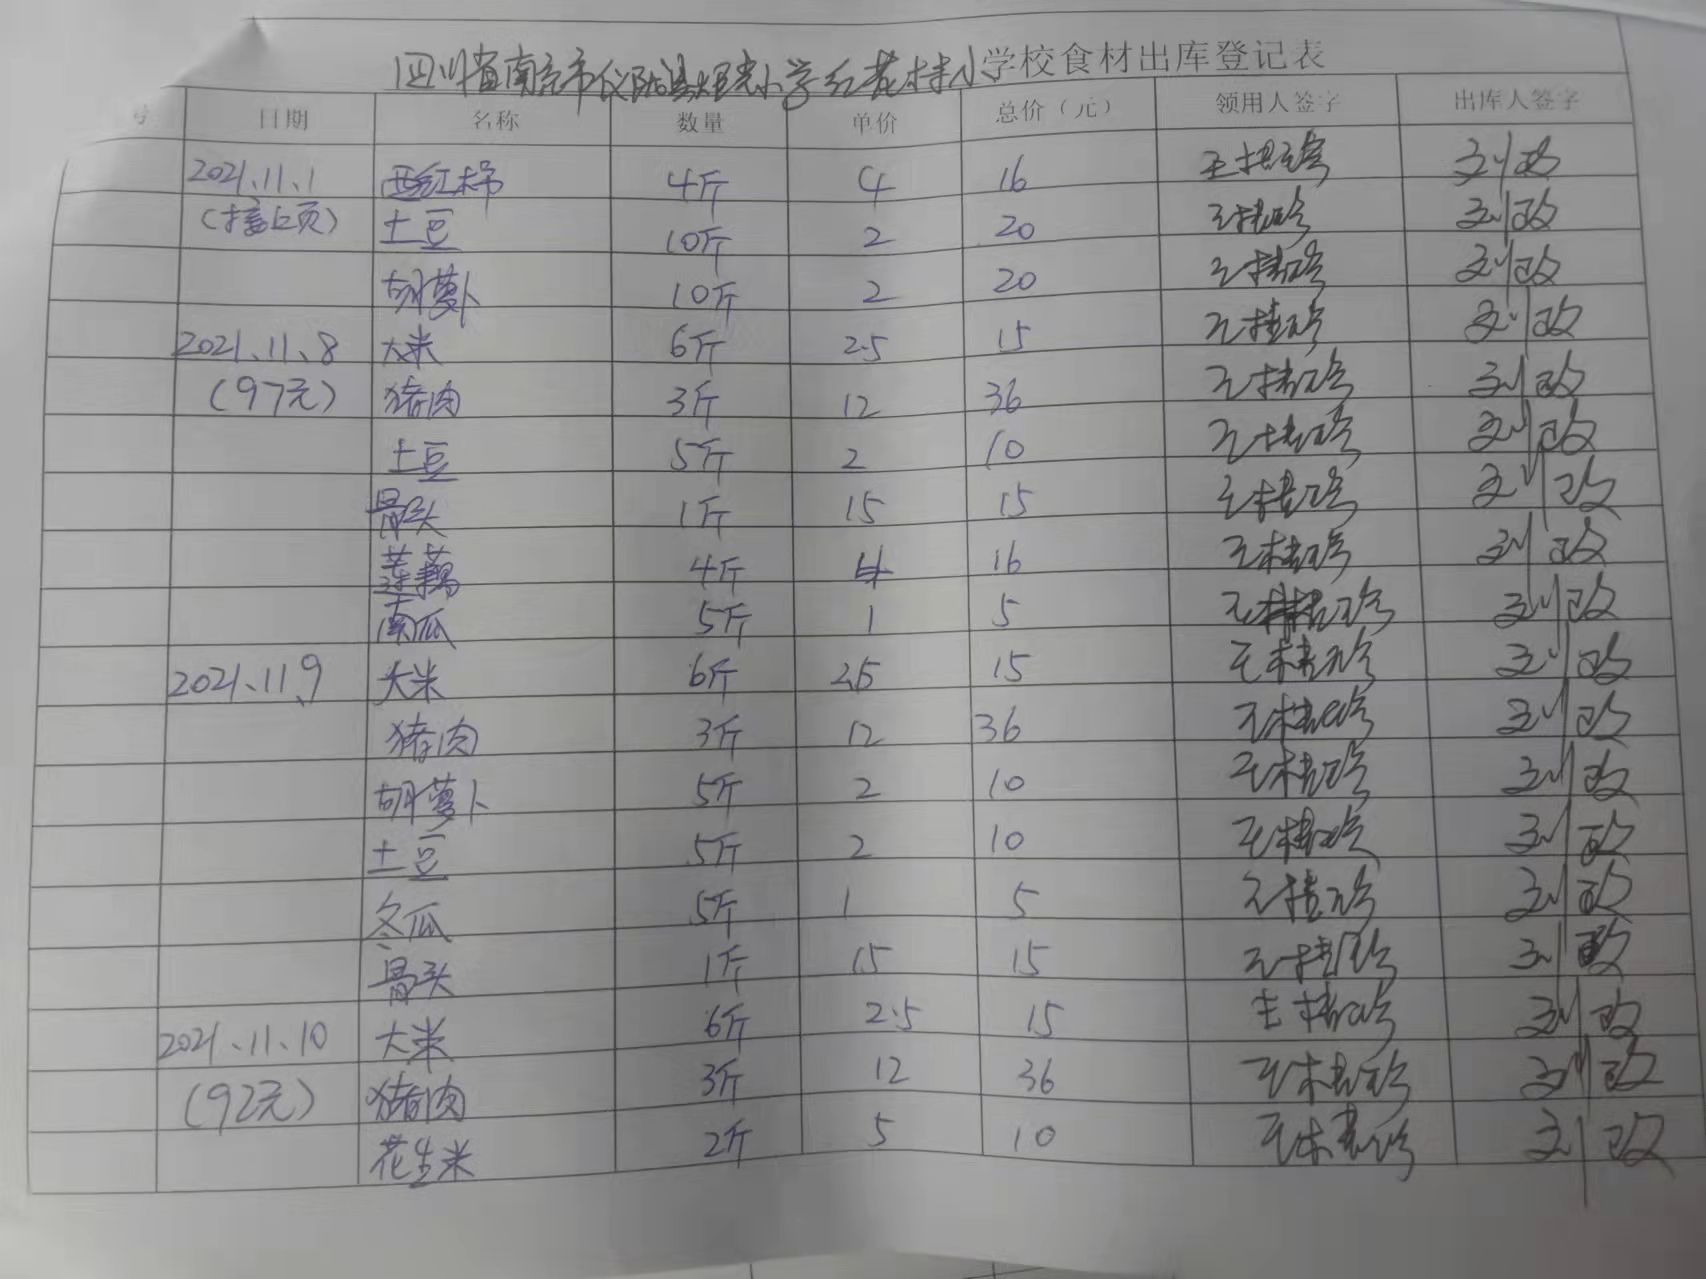 四川省南充市仪陇县炬光小学红花村小学校食材出库登记表
号 日期 名称 数量 单价 总价（元） 领用人签字 出库人签字
2021.11.1 西红柿 4斤 4 16 刘政
（接上页） 土豆 10斤 2 20 刘政
胡萝卜 10斤 2 20 刘政
2021.11.8 大米 6斤 2.5 15 刘政
（97元） 猪肉 3斤 12 36 刘政
土豆 5斤 2 10 刘政
骨头 1斤 15 15 刘政
莲藕 4斤 4 16 刘政
南瓜 5斤 1 5 刘政
2021.11.9 大米 6斤 2.5 15 刘政
猪肉 3斤 12 36 刘政
胡萝卜 5斤 2 10 刘政
土豆 5斤 2 10 刘政
冬瓜 5斤 1 5 刘政
骨头 1斤 15 15 刘政
2021.11.10 大米 6斤 2.5 15 刘政
（92元） 猪肉 3斤 12 36 刘政
花生米 2斤 5 10 刘政